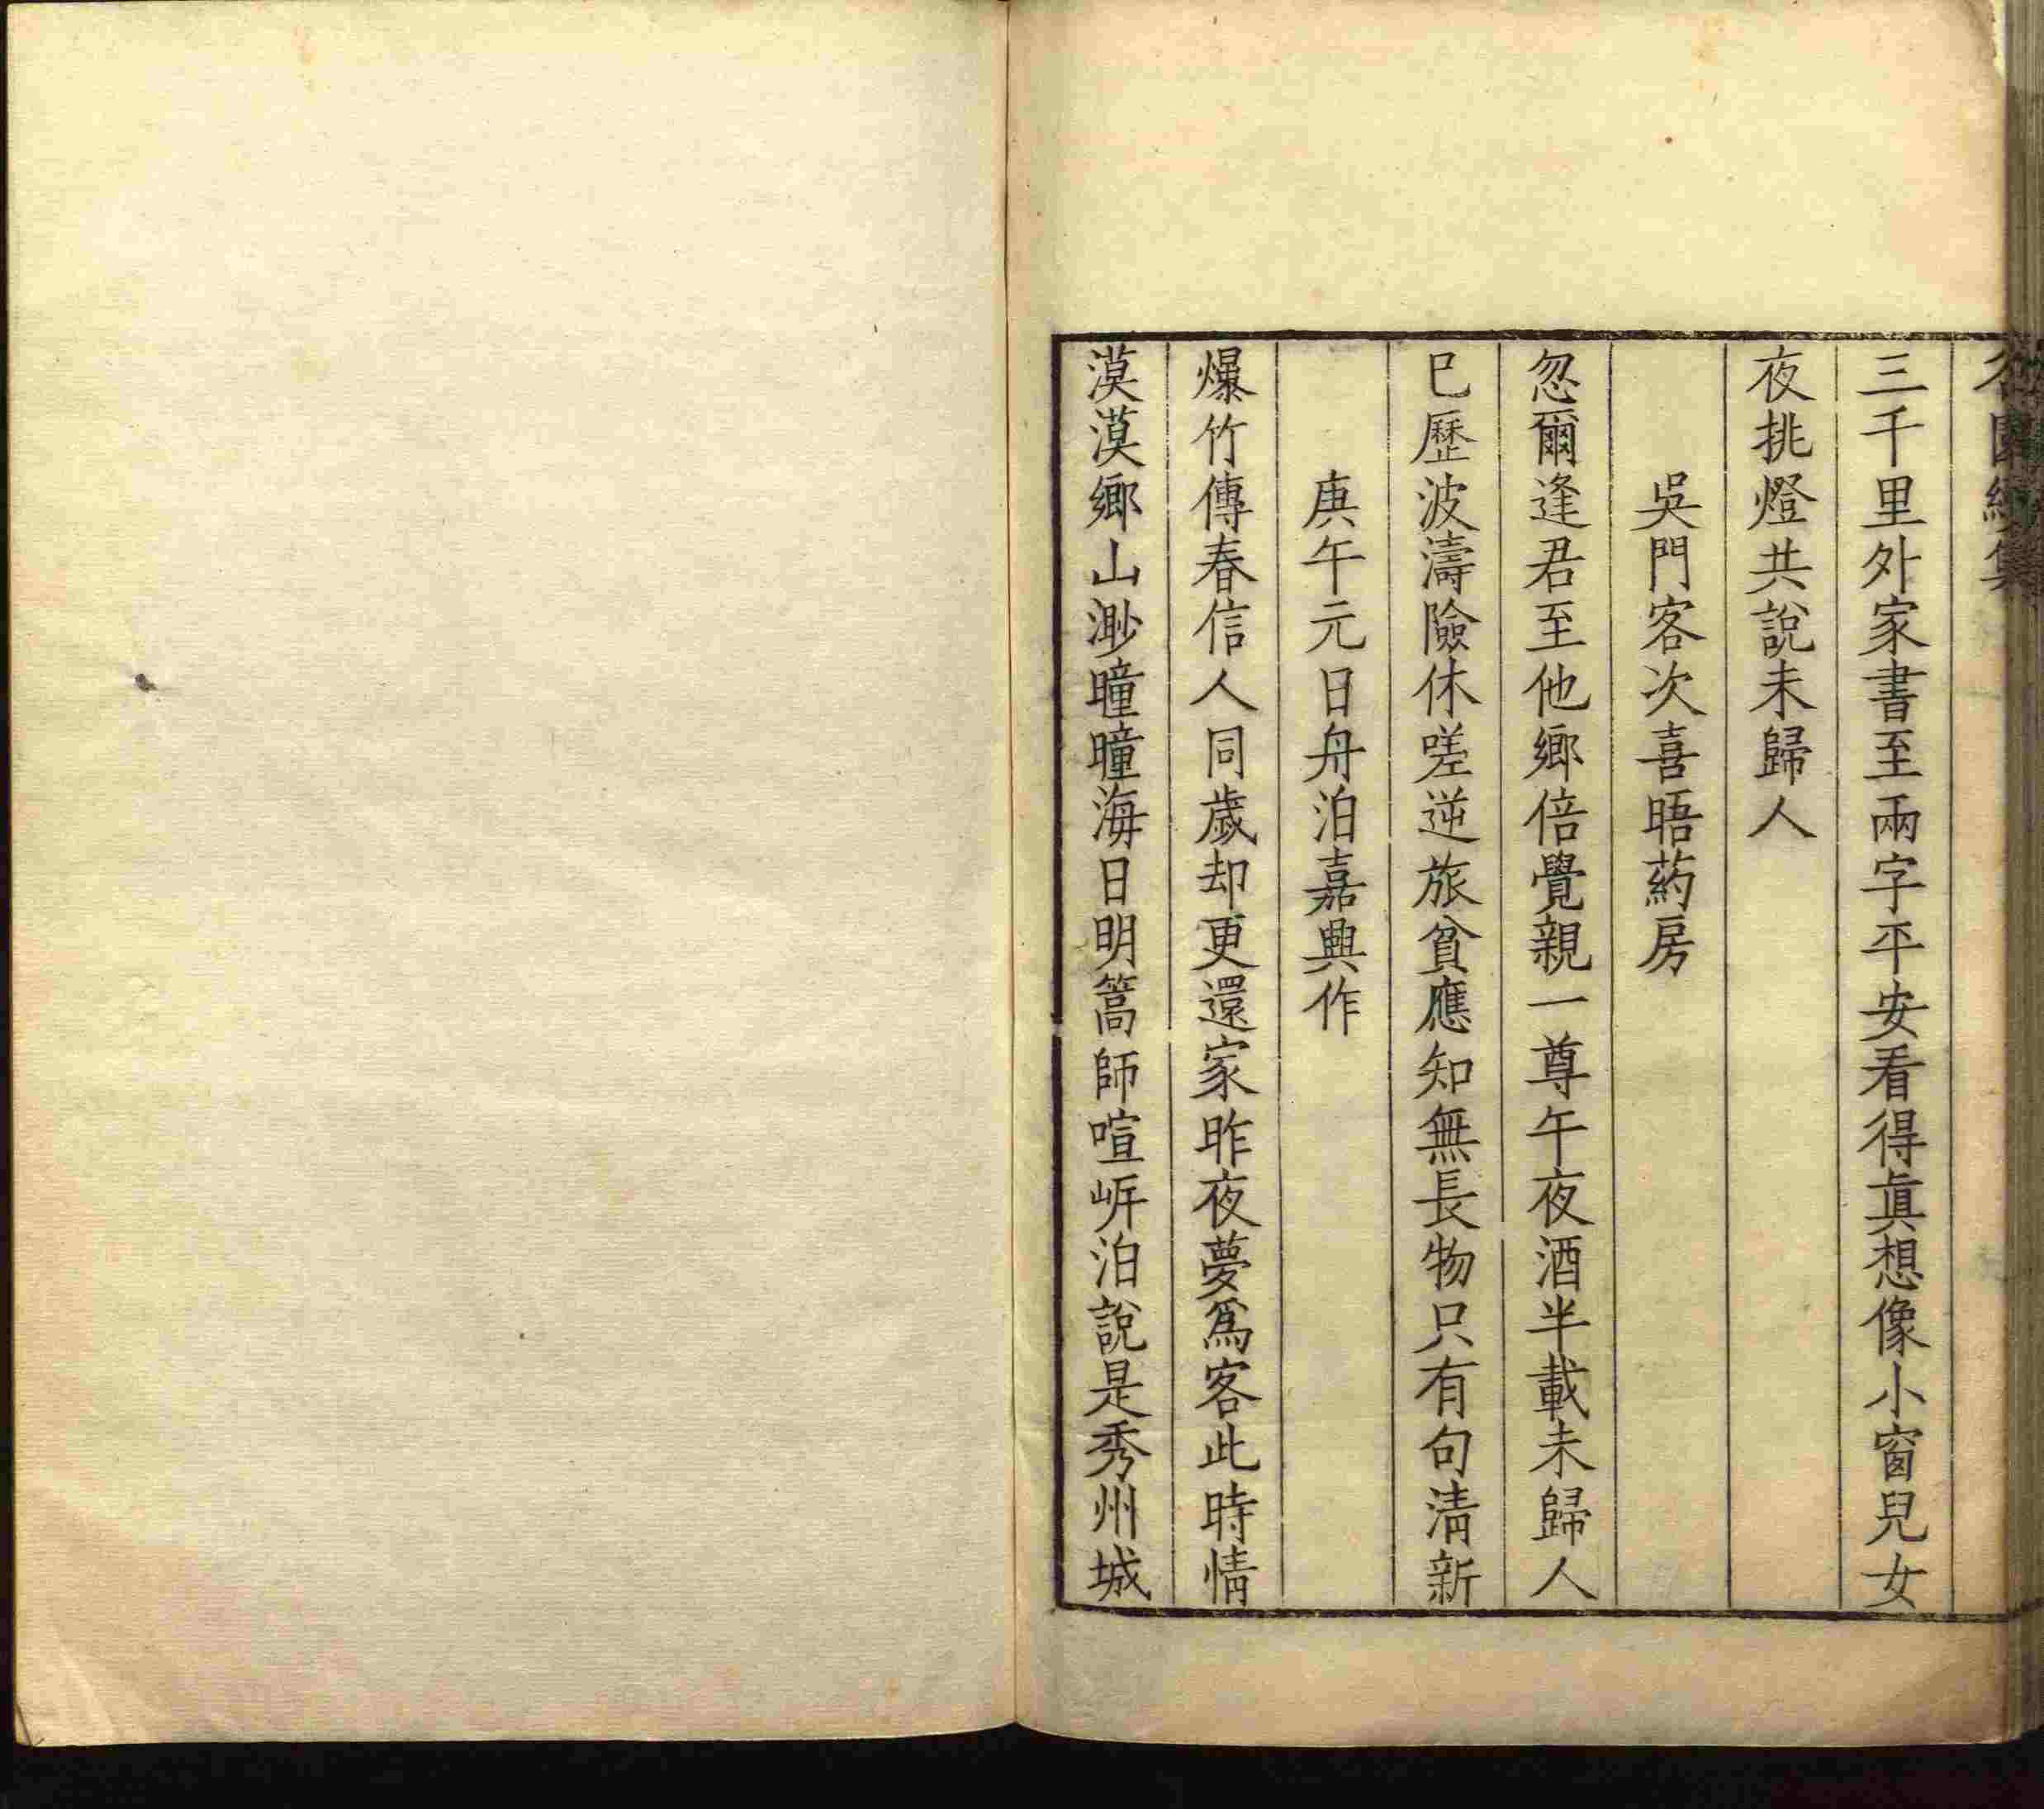 三千里外家書至兩字平安看得眞想像小窗兒女
夜挑燈共說未歸人
吳門客次喜晤葯房
忽爾逢君至他鄉倍覺親一尊午夜酒半載未歸人
已歷波濤險休嗟逆旅貧應知無長物只有句淸新
庚午元日舟泊嘉興作
爆竹傳春信人同歲却更還家昨夜夢爲客此時情
漠漠鄉山渺曈曈海日明篙師喧岍泊說是秀州城